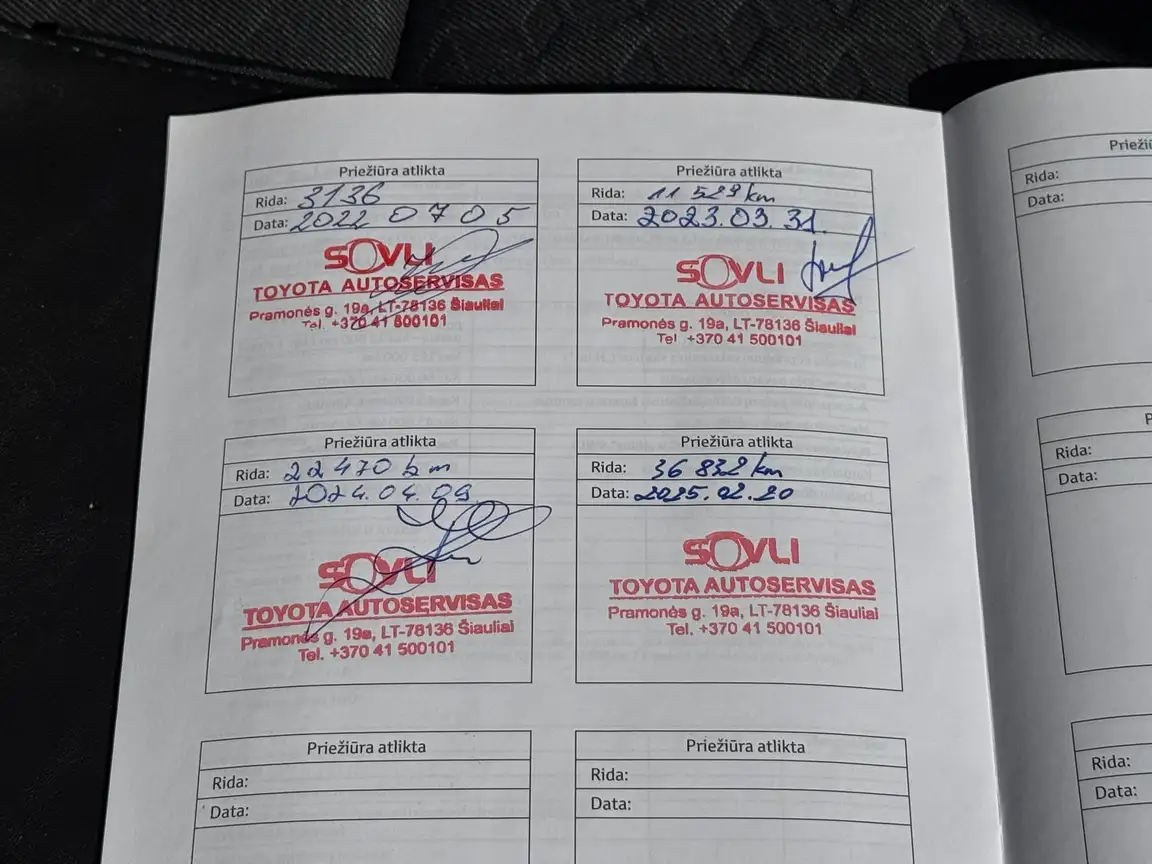 Priežiūra atlikta
Rida: 3136
Data: 2022 07 05
SOVLI
TOYOTA AUTOSERVISAS
Pramonės g. 19a, LT-78136 Šiauliai
Tel. +370 41 500101
Priežiūra atlikta
Rida: 11 529 km
Data: 2023.03.31.
SOVLI
TOYOTA AUTOSERVISAS
Pramonės g. 19a, LT-78136 Šiauliai
Tel. +370 41 500101
Priežiūra atlikta
Rida: 22 470 km
Data: 2024.04.09
SOVLI
TOYOTA AUTOSERVISAS
Pramonės g. 19a, LT-78136 Šiauliai
Tel. +370 41 500101
Priežiūra atlikta
Rida: 36 832 km
Data: 2025.02.20
SOVLI
TOYOTA AUTOSERVISAS
Pramonės g. 19a, LT-78136 Šiauliai
Tel. +370 41 500101
Priežiūra atlikta
Rida:
Data:
Priežiūra atlikta
Rida:
Data:
Rida:
Data:
Rida:
Data:
Rida:
Data: